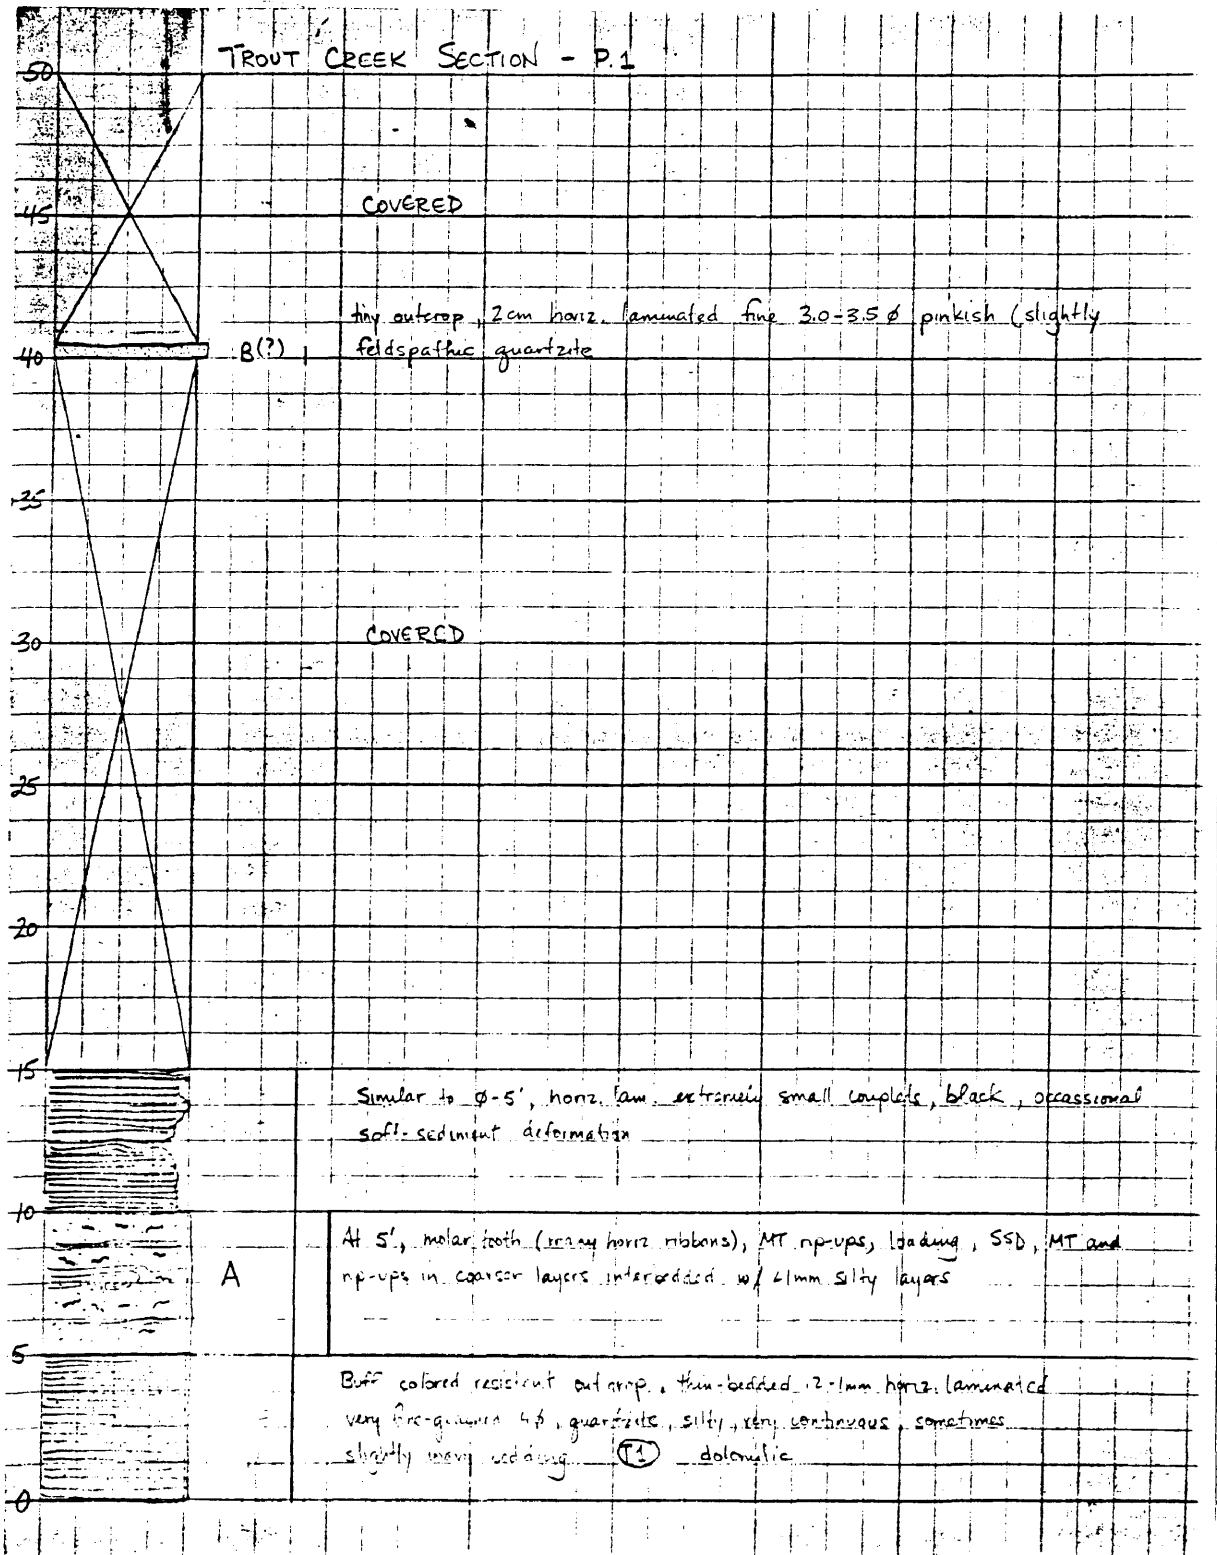 TROUT CREEK SECTION - P.1
50
COVERED
45
tiny outcrop, 2cm horiz. laminated fine 3.0-3.5 ø pinkish (slightly
40 B(?) feldspathic quartzite
35
COVERED
30
25
20
15
Similar to ø-5', horiz. lam. extremely small couplets, black, occassional
soft-sediment deformation
10
At 5', molar tooth (many horiz ribbons), MT rip-ups, loading, SSD, MT and
A rip-ups in coarser layers interbedded w/ <1mm silty layers
5
Buff colored resistant outcrop, thin-bedded .2-1mm horiz. laminated
very fine-grained 4ø, quartzite, silty, very continuous, sometimes
slightly wavy bedding T1 dolomitic
0